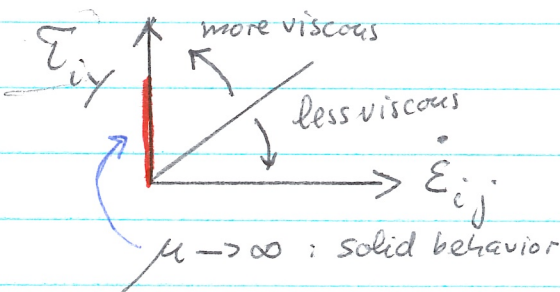 more viscous
τ_iy
less viscous
ε̇_ij
μ → ∞ : solid behavior